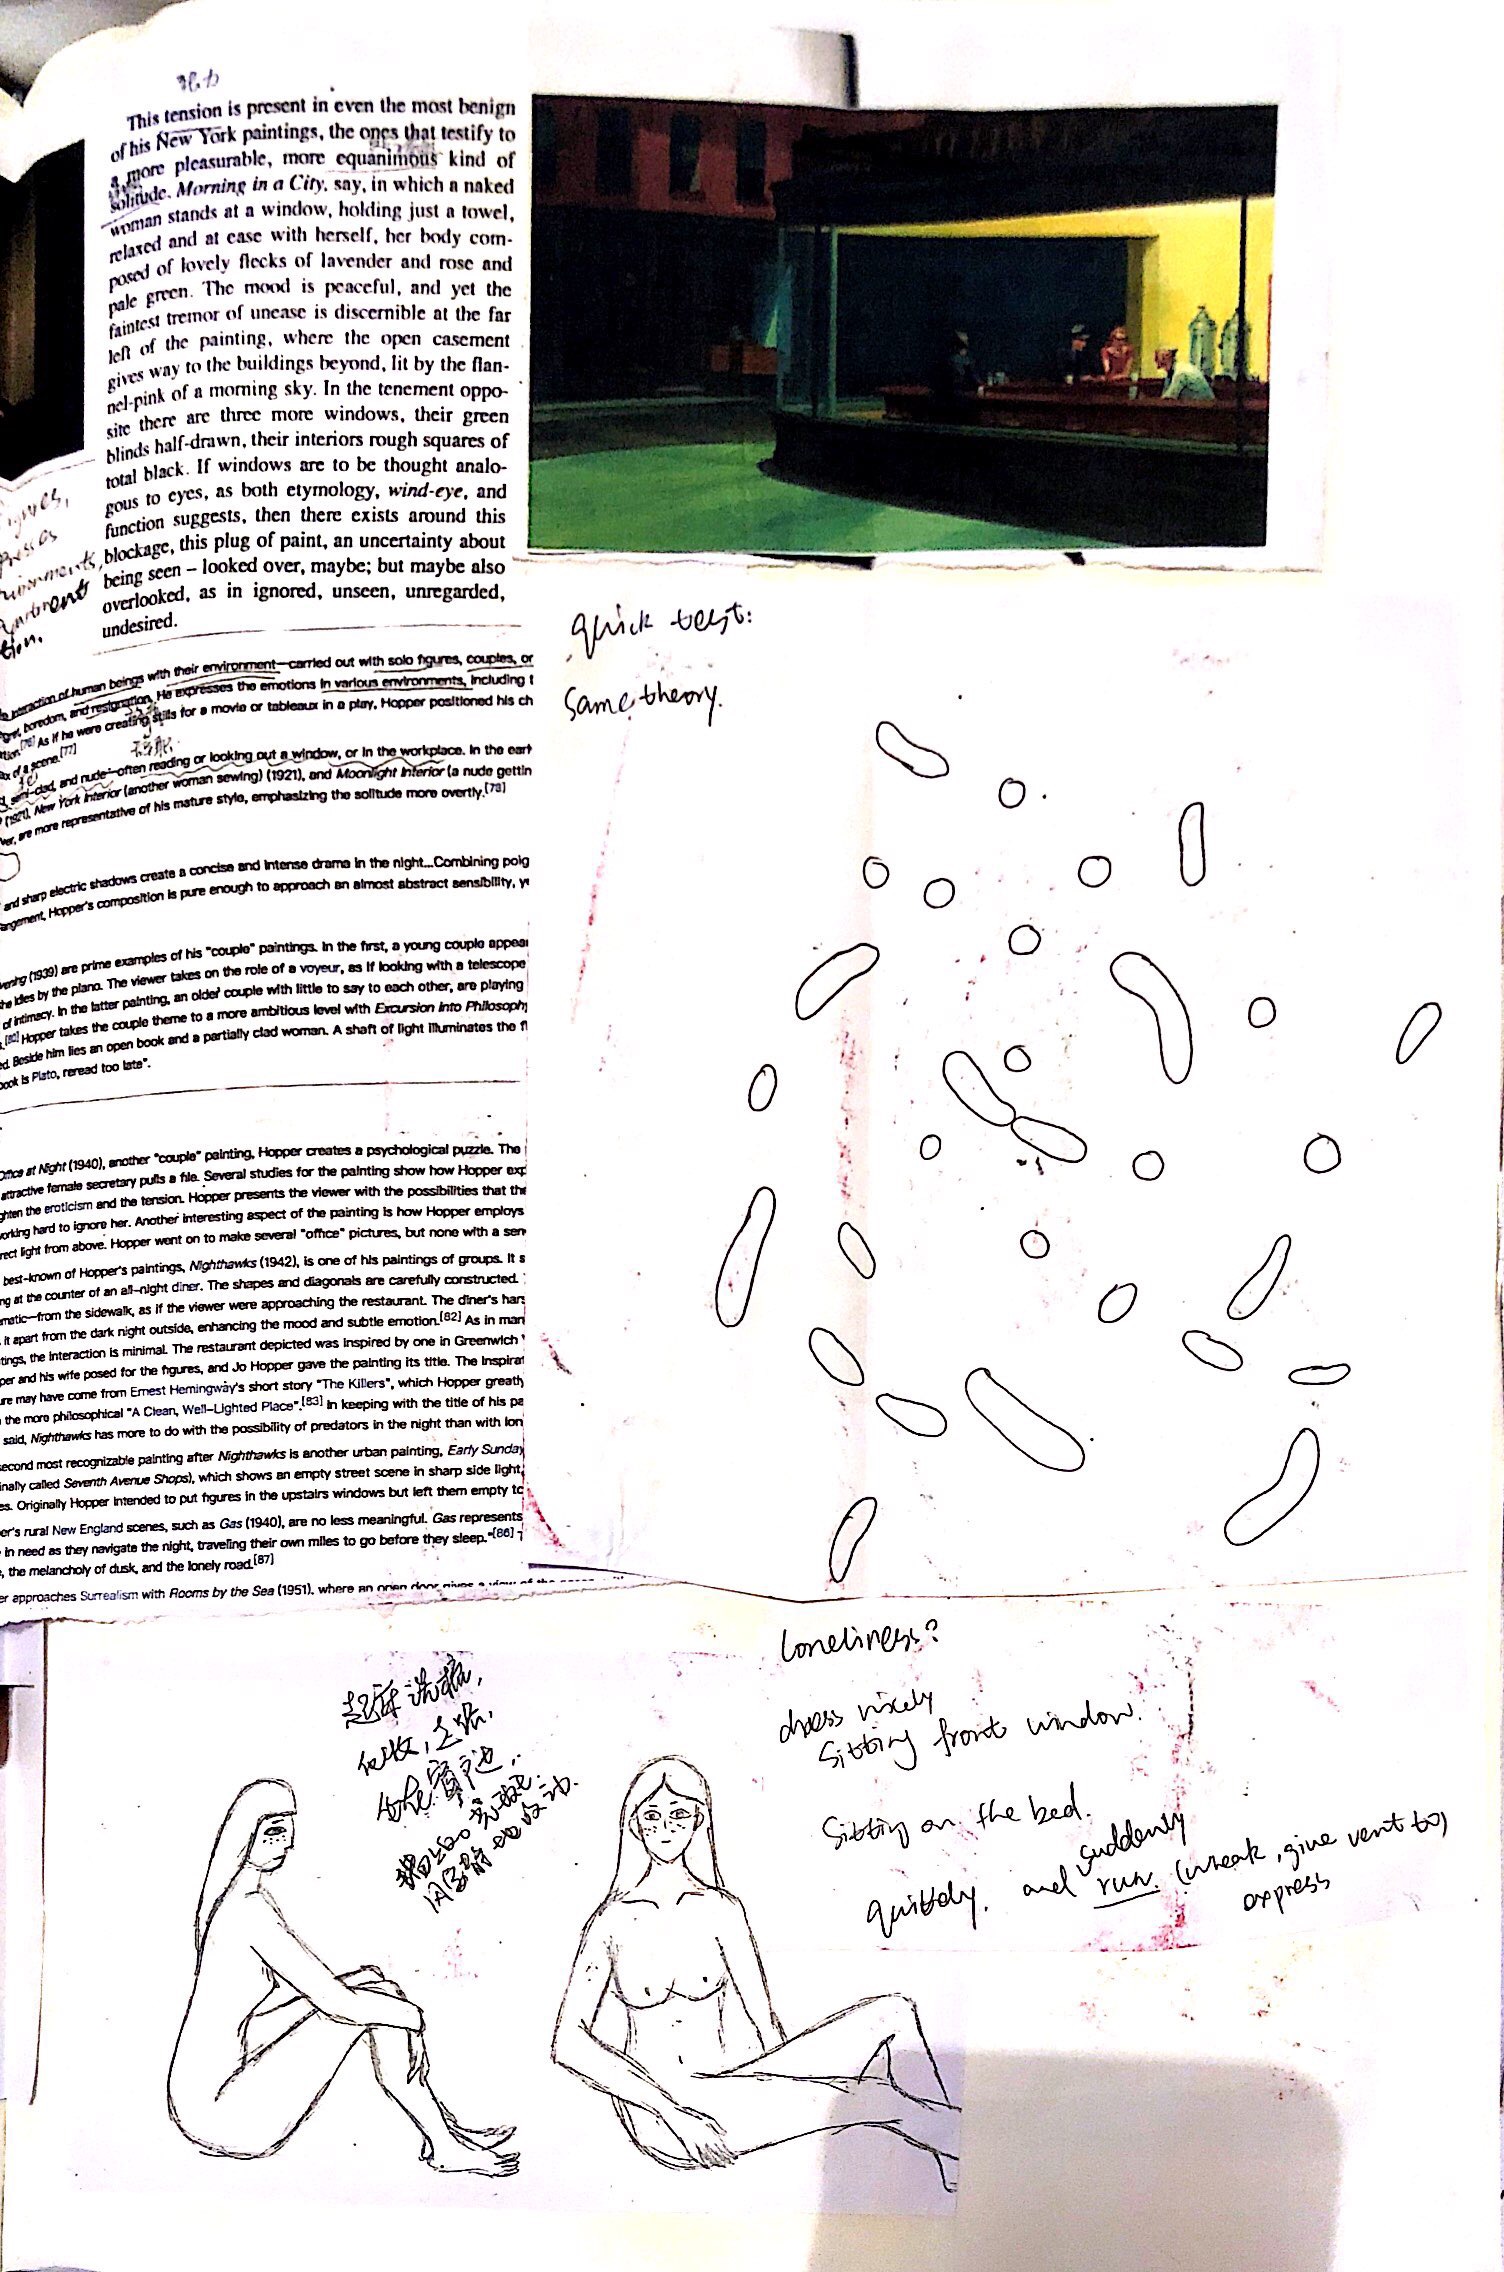 This tension is present in even the most benign
of his New York paintings, the ones that testify to
a more pleasurable, more equanimous kind of
solitude. Morning in a City, say, in which a naked
woman stands at a window, holding just a towel,
relaxed and at ease with herself, her body com-
posed of lovely flecks of lavender and rose and
pale green. The mood is peaceful, and yet the
faintest tremor of unease is discernible at the far
left of the painting, where the open casement
gives way to the buildings beyond, lit by the flan-
nel-pink of a morning sky. In the tenement oppo-
site there are three more windows, their green
blinds half-drawn, their interiors rough squares of
total black. If windows are to be thought analo-
gous to eyes, as both etymology, wind-eye, and
function suggests, then there exists around this
blockage, this plug of paint, an uncertainty about
being seen – looked over, maybe; but maybe also
overlooked, as in ignored, unseen, unregarded,
undesired.
tion.
interaction of human beings with their environment—carried out with solo figures, couples, or
boredom, and resignation. He expresses the emotions in various environments, including t
[76] As if he were creating stills for a movie or tableaux in a play, Hopper positioned his ch
of a scene.[77]
semi-clad, and nude—often reading or looking out a window, or in the workplace. In the earl
(1921), New York Interior (another woman sewing) (1921), and Moonlight Interior (a nude gettin
are more representative of his mature style, emphasizing the solitude more overtly.[73]
and sharp electric shadows create a concise and intense drama in the night...Combining poig
arrangement, Hopper's composition is pure enough to approach an almost abstract sensibility, y
(1939) are prime examples of his "couple" paintings. In the first, a young couple appear
she idles by the piano. The viewer takes on the role of a voyeur, as if looking with a telescope
of intimacy. In the latter painting, an older couple with little to say to each other, are playing
[80] Hopper takes the couple theme to a more ambitious level with Excursion into Philosophy
ed. Beside him lies an open book and a partially clad woman. A shaft of light illuminates the fl
book is Plato, reread too late".
Office at Night (1940), another "couple" painting, Hopper creates a psychological puzzle. The
attractive female secretary pulls a file. Several studies for the painting show how Hopper exp
ghten the eroticism and the tension. Hopper presents the viewer with the possibilities that the
working hard to ignore her. Another interesting aspect of the painting is how Hopper employs
rect light from above. Hopper went on to make several "office" pictures, but none with a sen
best-known of Hopper's paintings, Nighthawks (1942), is one of his paintings of groups. It s
ng at the counter of an all-night diner. The shapes and diagonals are carefully constructed.
matic—from the sidewalk, as if the viewer were approaching the restaurant. The diner's hars
it apart from the dark night outside, enhancing the mood and subtle emotion.[82] As in man
tings, the interaction is minimal. The restaurant depicted was inspired by one in Greenwich
per and his wife posed for the figures, and Jo Hopper gave the painting its title. The inspirat
ure may have come from Ernest Hemingway's short story "The Killers", which Hopper greatly
the more philosophical "A Clean, Well-Lighted Place".[83] In keeping with the title of his pa
said, Nighthawks has more to do with the possibility of predators in the night than with lon
second most recognizable painting after Nighthawks is another urban painting, Early Sunday
inally called Seventh Avenue Shops), which shows an empty street scene in sharp side light,
es. Originally Hopper intended to put figures in the upstairs windows but left them empty to
er's rural New England scenes, such as Gas (1940), are no less meaningful. Gas represents
in need as they navigate the night, traveling their own miles to go before they sleep."[86]
, the melancholy of dusk, and the lonely road.[87]
er approaches Surrealism with Rooms by the Sea (1951), where an open door gives a view of the
quick test:
Same theory.
loneliness?
dress nicely
Sitting front window.
Sitting on the bed.
suddenly
quitely. and run. (wreak, give vent to)
express